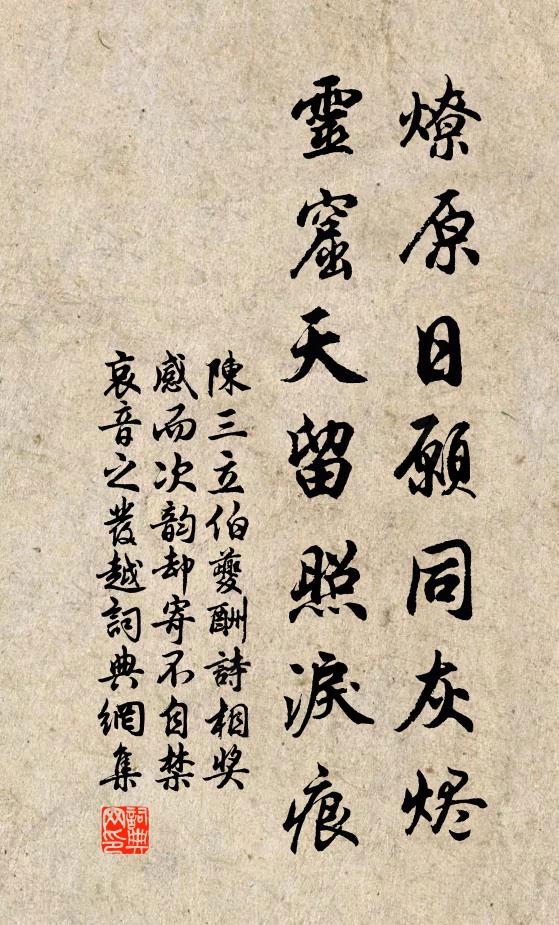 燎原日願同灰烬
靈窟天留照淚痕
陳三立伯夔酬詩相奖
感而次韵却寄不自禁
哀音之發越詞典網集
詞典
网印